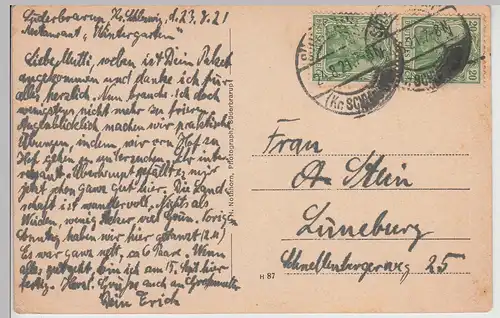 Süderbrarup, Kr. Schleswig, d. 23.8.21
Restaurant "Wintergarten"
Liebe Mutti, soeben ist Dein Paket
angekommen und danke ich für
alles herzlich. Nun brauche ich doch
wenigstens nicht mehr zu frieren.
Augenblicklich machen wir praktische
Übungen, indem wir von Hof zu
Hof gehen zu untersuchen. Sehr inte-
ressant. Überhaupt gefällt es mir
jetzt schon ganz gut hier. Die Land-
schaft ist wundervoll. Nichts als
Weiden, wenig Äcker, viel Grün. Vorigen
Sonntag haben wir hier getanzt (2 M)
Es war ganz nett, ca 6 Paare. Wenn
alles gut geht, bin ich am 15. Sept. hier
fertig. Herzl. Grüße auch an Großmutter
Dein Erich
N. Nothhorn, Photograph, Süderbrarup
H 87
Frau
A. Stein
Lüneburg
Schnellenbergerweg 25
(Kr. SCHLESWIG)
20